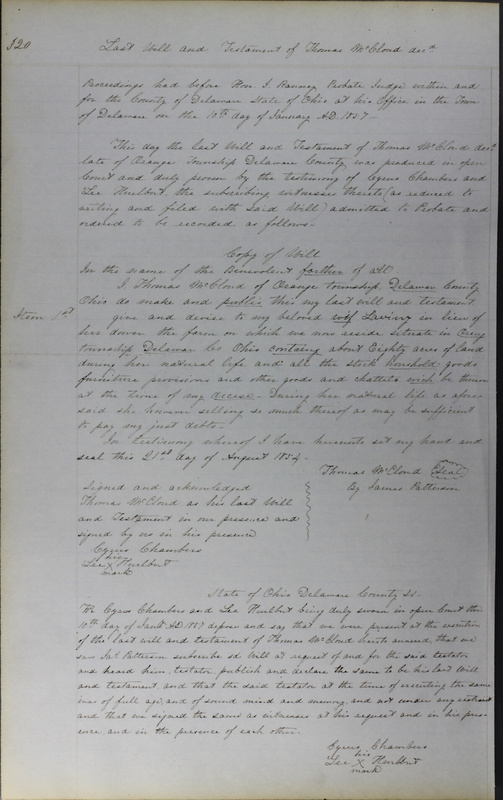 520
Last Will and Testament of Thomas McCloud decd
Proceedings had before Hon. I. Ranney Probate Judge within and
for the County of Delaware State of Ohio at his Office in the Town
of Delaware on the 10th day of January A.D. 1857
This day the last Will and Testament of Thomas McCloud decd
late of Orange Township Delaware County was produced in open
Court and duly proven by the testimony of Cyrus Chambers and
Lee Hurlbut the subscribing witnesses thereto (as reduced to
writing and filed with said Will) admitted to Probate and
ordered to be recorded as follows.
Copy of Will
In the name of the Benevolent farther of all
I Thomas McCloud of Orange township Delawar County
Ohio do make and public this my last will and testament
Item 1st give and devise to my beloved wif Laviny in lieu of
her dower the farm on which we now reside situate in Oreng
township Delawar Co Ohio containg about Eighty acres of land
during her natural life and all the stock houshold goods
furniture provisions and other goods and chattels wich be thereon
at the time of my decase - During her natural life as afore
said she however selling so much thereof as may be sufficient
to pay my just debts.
In testimony whereof I have hereunto set my hand and
seal this 21st day of August 1854.
Thomas McCloud Seal
By James Patterson
Signed and acknowledged
Thomas McCloud as his last Will
and Testament in our presence and
signed by us in his presence
Cyrus Chambers
his
Lee X Hurlbut
mark
State of Ohio Delaware County Ss.
We Cyrus Chambers and Lee Hurlbut being duly sworn in open Court this
10th day of Jany A.D. 1857 depose and say that we were present at the execution
of the last will and testament of Thomas McCloud hereto annexed, that we
saw Jas. Patterson subscribe sd Will at request of and for the said testator
and heard him, testator publish and declare the same to be his last Will
and testament, and that the said testator at the time of executing the same
was of full age, and of sound mind and memory and not under any restraint
and that we signed the same as witnesses at his request and in his pres-
ence and in the presence of each other.
Cyrus Chambers
his
Lee X Hurlbut
mark